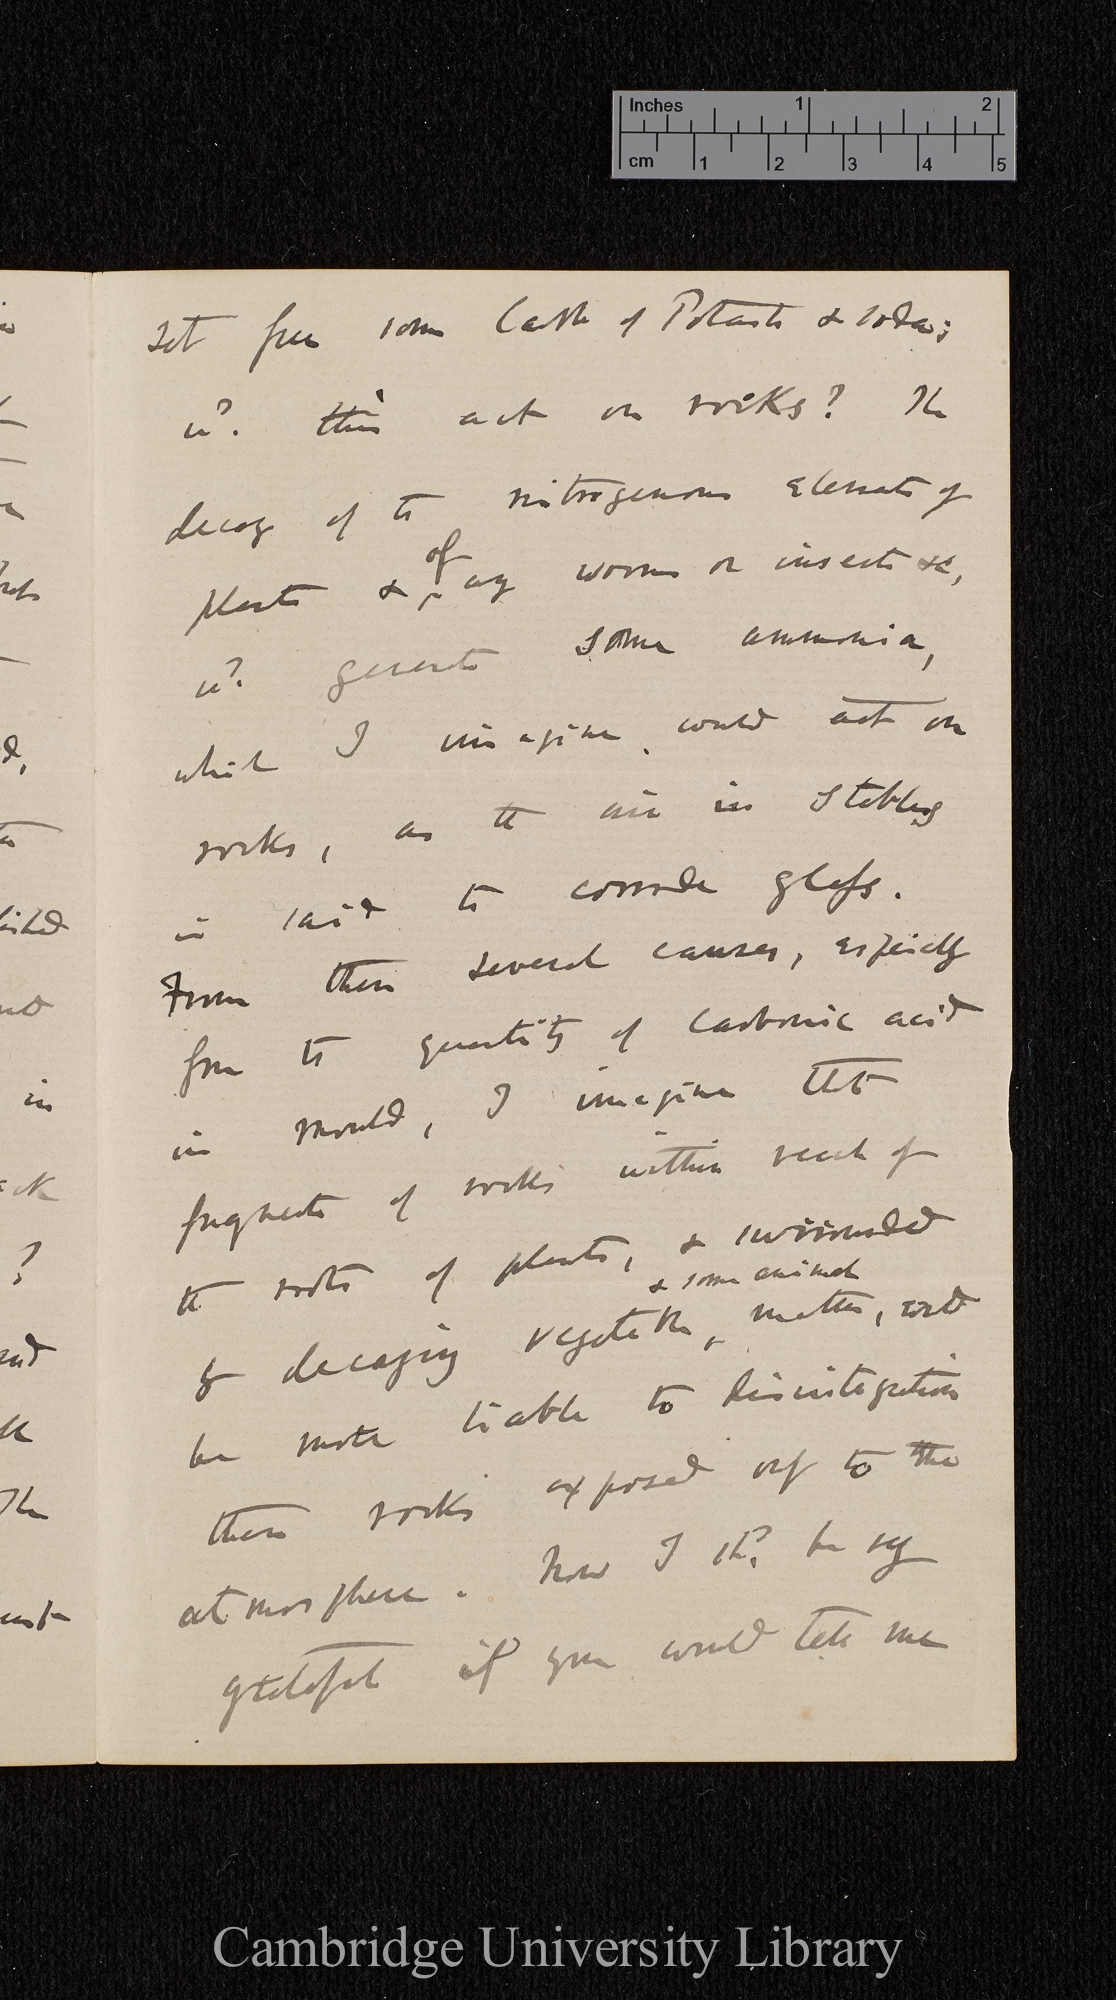 Inches 1 2
cm 1 2 3 4 5
set free some Carb of Potash & soda;
wd. this act on rocks? The
decay of the nitrogenous elements of
plants & of any worms or insects &c,
wd. generate some ammonia,
which I imagine would act on
rocks, as the air in Stables
is said to corrode glass.
From these several causes, especially
from the quantity of carbonic acid
in mould, I imagine that
fragments of rocks within reach of
the roots of plants, & surrounded
by decaying vegetable & some animal matter, would
be more liable to disintegration
than rocks exposed only to the
atmosphere. Now I shd. be very
grateful if you would tell me
in
?
The
Cambridge University Library